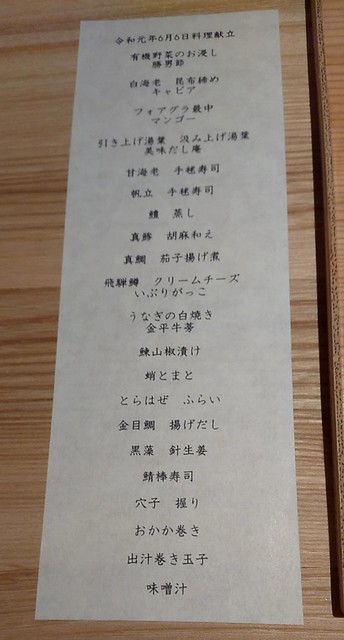 令和元年6月6日料理献立
有機野菜のお浸し
勝男節
白海老　昆布締め
キャビア
フォアグラ最中
マンゴー
引き上げ湯葉　汲み上げ湯葉
美味だし庵
甘海老　手毬寿司
帆立　手毬寿司
蒸し
真鯵　胡麻和え
真鯛　茄子揚げ煮
飛騨鱒　クリームチーズ
いぶりがっこ
うなぎの白焼き
金平牛蒡
鰊山椒漬け
蛸とまと
とらはぜ　ふらい
金目鯛　揚げだし
黒藻　針生姜
鯖棒寿司
穴子　握り
おかか巻き
出汁巻き玉子
味噌汁